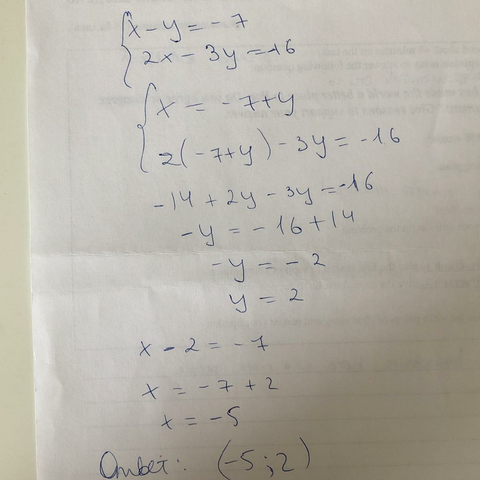 x - y = -7
2x - 3y = -16
x = -7 + y
2(-7+y) - 3y = -16
-14 + 2y - 3y = -16
-y = -16 + 14
-y = -2
y = 2
x - 2 = -7
x = -7 + 2
x = -5
Ответ: (-5; 2)